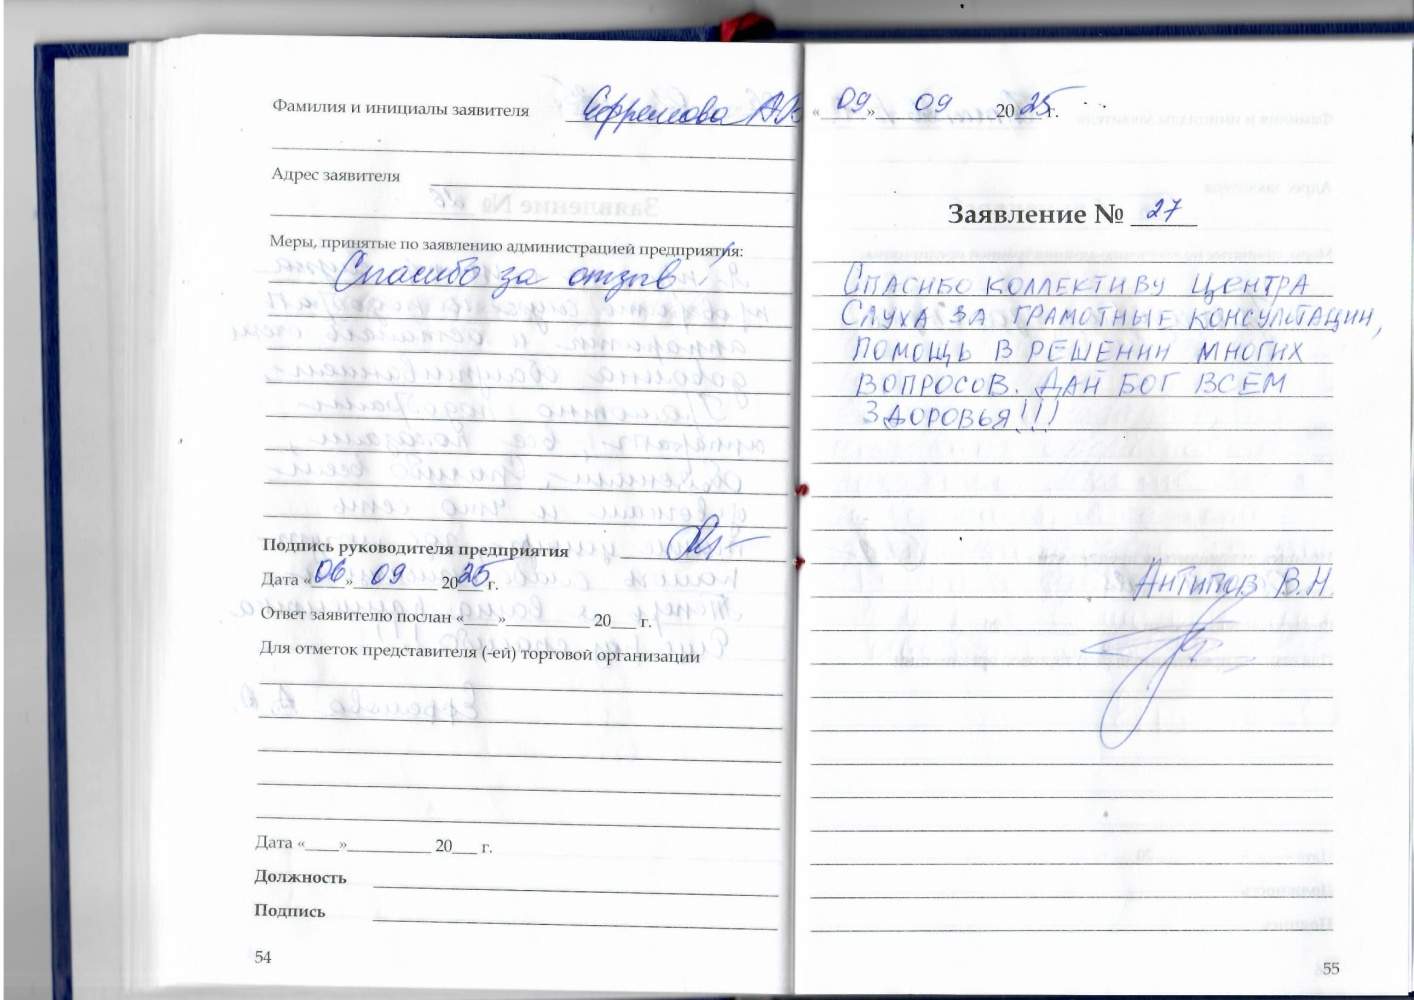 Фамилия и инициалы заявителя Ефремова А.В
Адрес заявителя
Меры, принятые по заявлению администрацией предприятия:
Спасибо за отзыв
Подпись руководителя предприятия
Дата «06» 09 2025 г.
Ответ заявителю послан «____»__________ 20___ г.
Для отметок представителя (-ей) торговой организации
Дата «____»__________ 20___ г.
Должность
Подпись
54
«09» 09 2025 г.
Заявление № 27
СПАСИБО КОЛЛЕКТИВУ ЦЕНТРА
СЛУХА ЗА ГРАМОТНЫЕ КОНСУЛЬТАЦИИ,
ПОМОЩЬ В РЕШЕНИИ МНОГИХ
ВОПРОСОВ. ДАЙ БОГ ВСЕМ
ЗДОРОВЬЯ!!!
АНТИПОВ В.Н.
55